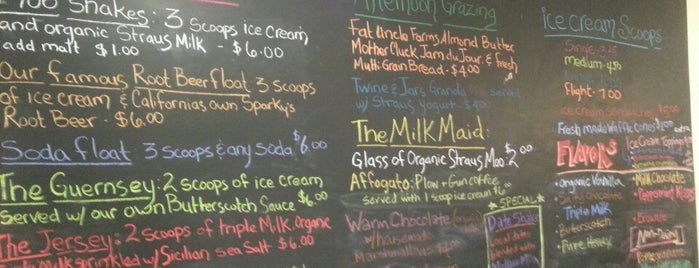 Shakes: 3 scoops ice cream,
and organic Straus Milk - $6.00
add malt $1.00
Our Famous Root Beer float 3 scoops
of ice cream & Californias own Sparky's
Root Beer - $6.00
Soda float 3 scoops & any soda $6.00
The Guernsey: 2 scoops of ice cream
served w/ our own Butterscotch Sauce $6.00
The Jersey: 2 scoops of triple Milk, organic
Milk sprinkled w/ Sicilian
sea Salt $6.00
Afternoon Grazing
Fat Uncle Farms Almond Butter
Mother Cluck Jam du Jour & fresh
Multi Grain Bread - $4.00
Twine & Jars Granola served
w/ Straus yogurt - $4.00
The Milk Maid:
Glass of Organic Straus Moo: 2.00
Affogato: Plow & Gun coffee
served with 1 scoop ice cream
Warm Chocolate
w/ housemade
Marshmallows
*SPECIAL*
Date Shake
Local dates
blended with
ice Cream Scoops
Single
medium - 4.50
Flight - 7.00
Fresh made Waffle cones $1.00
FLAVORS
organic Vanilla
Triple Milk
Butterscotch
Pure Honey
Ice Cream Toppings
Milk Chocolate
Brownie
Non-Dairy
Pomegranate